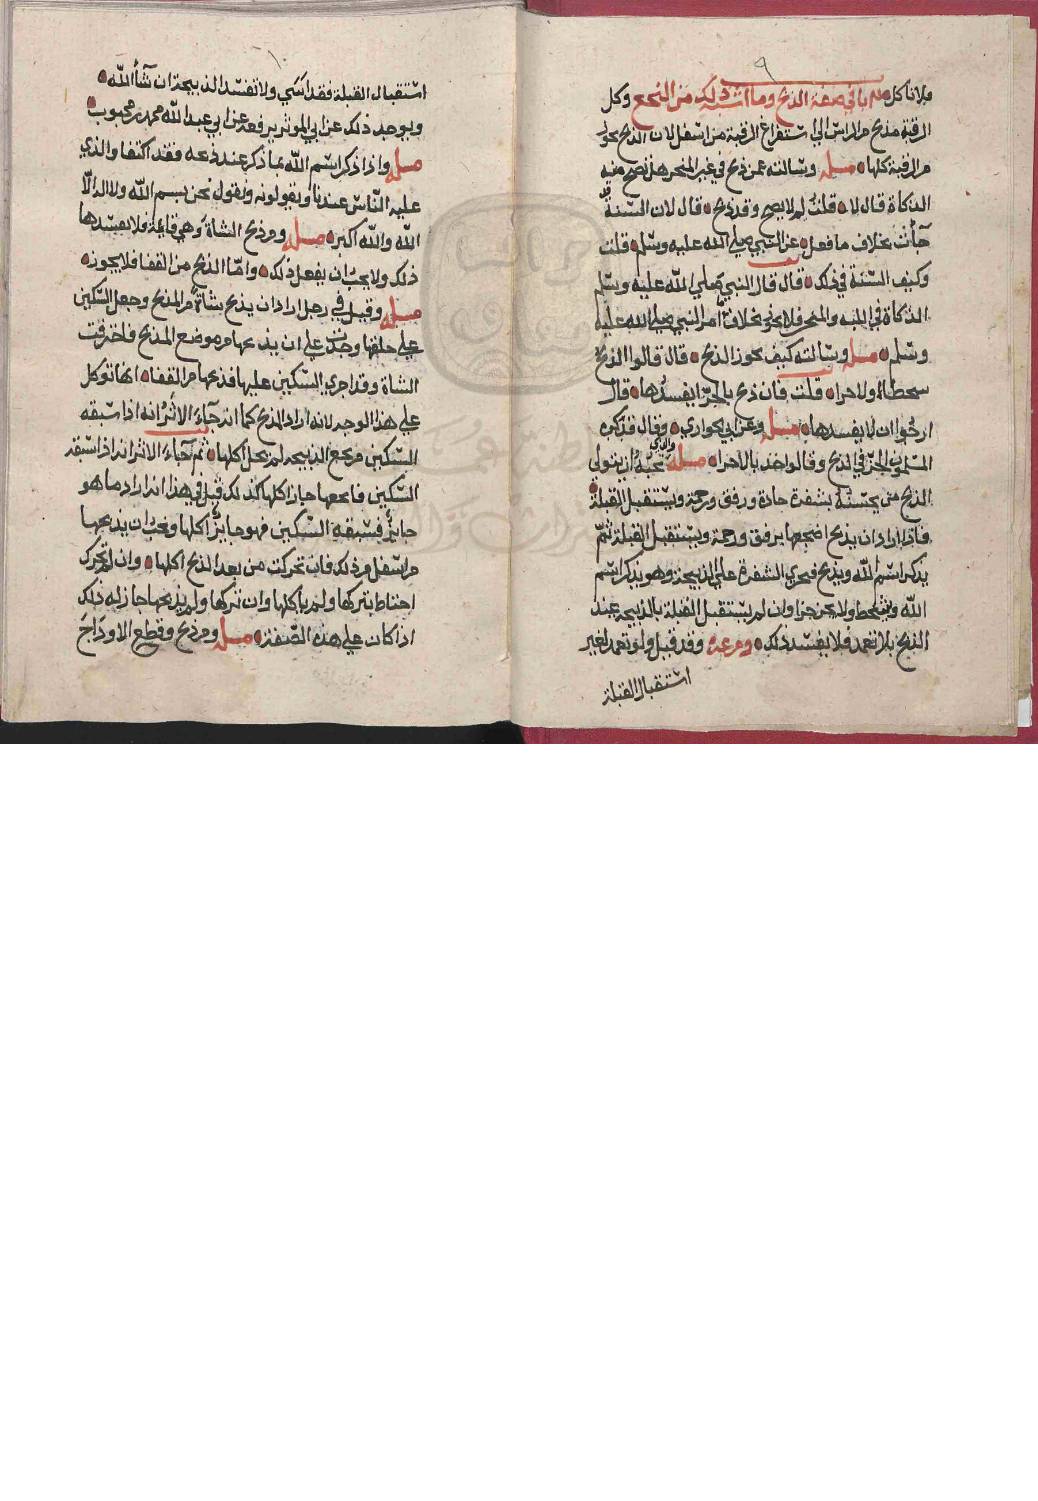 ٩
فلا تاكل منه باب في صفة الذبح وما اشبه ذلك من النخع وكل
الرقبة مذبح من الراس الى استفراغ الرقبة من اسفل لان الذبح يجوز
من الرقبة كلها مسلة وسالته عمن ذبح في غير المنحر هل تصح منه
الذكاة قال لا قلت لم لا يصح وقد ذبح قال لان السنة
جآت بخلاف ما فعل عن النبي صلى الله عليه وسلم قلت
وكيف السنة في ذلك قال قال النبي صلى الله عليه وسلم
الذكاة في اللبه والمنحر فلا يجوز بخلاف امر النبي صلى الله عليه
وسلم مسلة وسالته كيف يجوز الذبح قال قالوا الذبح
سحطا ولا حرا قلت فان ذبح بالجر ايفسدها قال
ارجوا ان لا يفسدها مسلة وعن ابي الحواري وقال قد كره
المسلمون الجر في الذبح وقالوا خذ بالاحرا مسلة والذي يجب ان يتولى
الذبح من يحسنه بشفرة حادة ورفق ورحمة ويستقبل القبلة
فاذا اراد ان يذبح اضجعها برفق ورحمة ويستقبل القبلة ثم
يذكر اسم الله ويذبح فيجري الشفرة على الذبيحة وهو يذكر اسم
الله ويشحط ولا يجر جرا وان لم يستقبل القبلة بالذبيحة عند
الذبح بلا تعمد فلا يفسد ذلك ومن غيره وقد قيل ولو تعمد لغير
استقبال القبلة
١٠
استقبال القبلة فقد اسي ولا تفسد الذبيحة ان شآ الله
ويوجد ذلك عن ابي الموثر يرفعه عن ابي عبد الله محمد بن محبوب
مسلة واذا ذكر اسم الله بما ذكر عند ذبحه فقد اكتفا والذي
عليه الناس عندنا ويقولونه ونقول نحن بسم الله ولا اله الا
الله والله اكبر مسلة ومن ذبح الشاة وهي قايمة فلا يفسدها
ذلك ولا يجب ان يفعل ذلك واما الذبح من القفا فلا يجوز
مسلة وقيل في رجل اراد ان يذبح شاة من المذبح وجعل السكين
على حلقها وحدث على ان يذبحها من موضع المذبح فاخترقت
الشاة وقد اجرى السكين عليها فذبحها من القفا انها توكل
على هذا الوجه لانه اراد المذبح كما انه جآء الاثر انه اذا سبقه
السكين من نخع الذبيحة لم يحل اكلها ثم جآء الاثر انه اذا سبقه
السكين فانخعها جاز اكلها كذلك قيل في هذا انه اراد ما هو
جايز فسبقه السكين فهو جايز اكلها ويجب ان يذبحها
من اسفل من ذلك فان تحركت من بعد الذبح اكلها وان لم تحرك
احتاط بتركها ولم ياكلها وان تركها ولم يذبحها جاز له ذلك
اذا كان على هذه الصفة مسلة ومن ذبح وقطع الاوداج